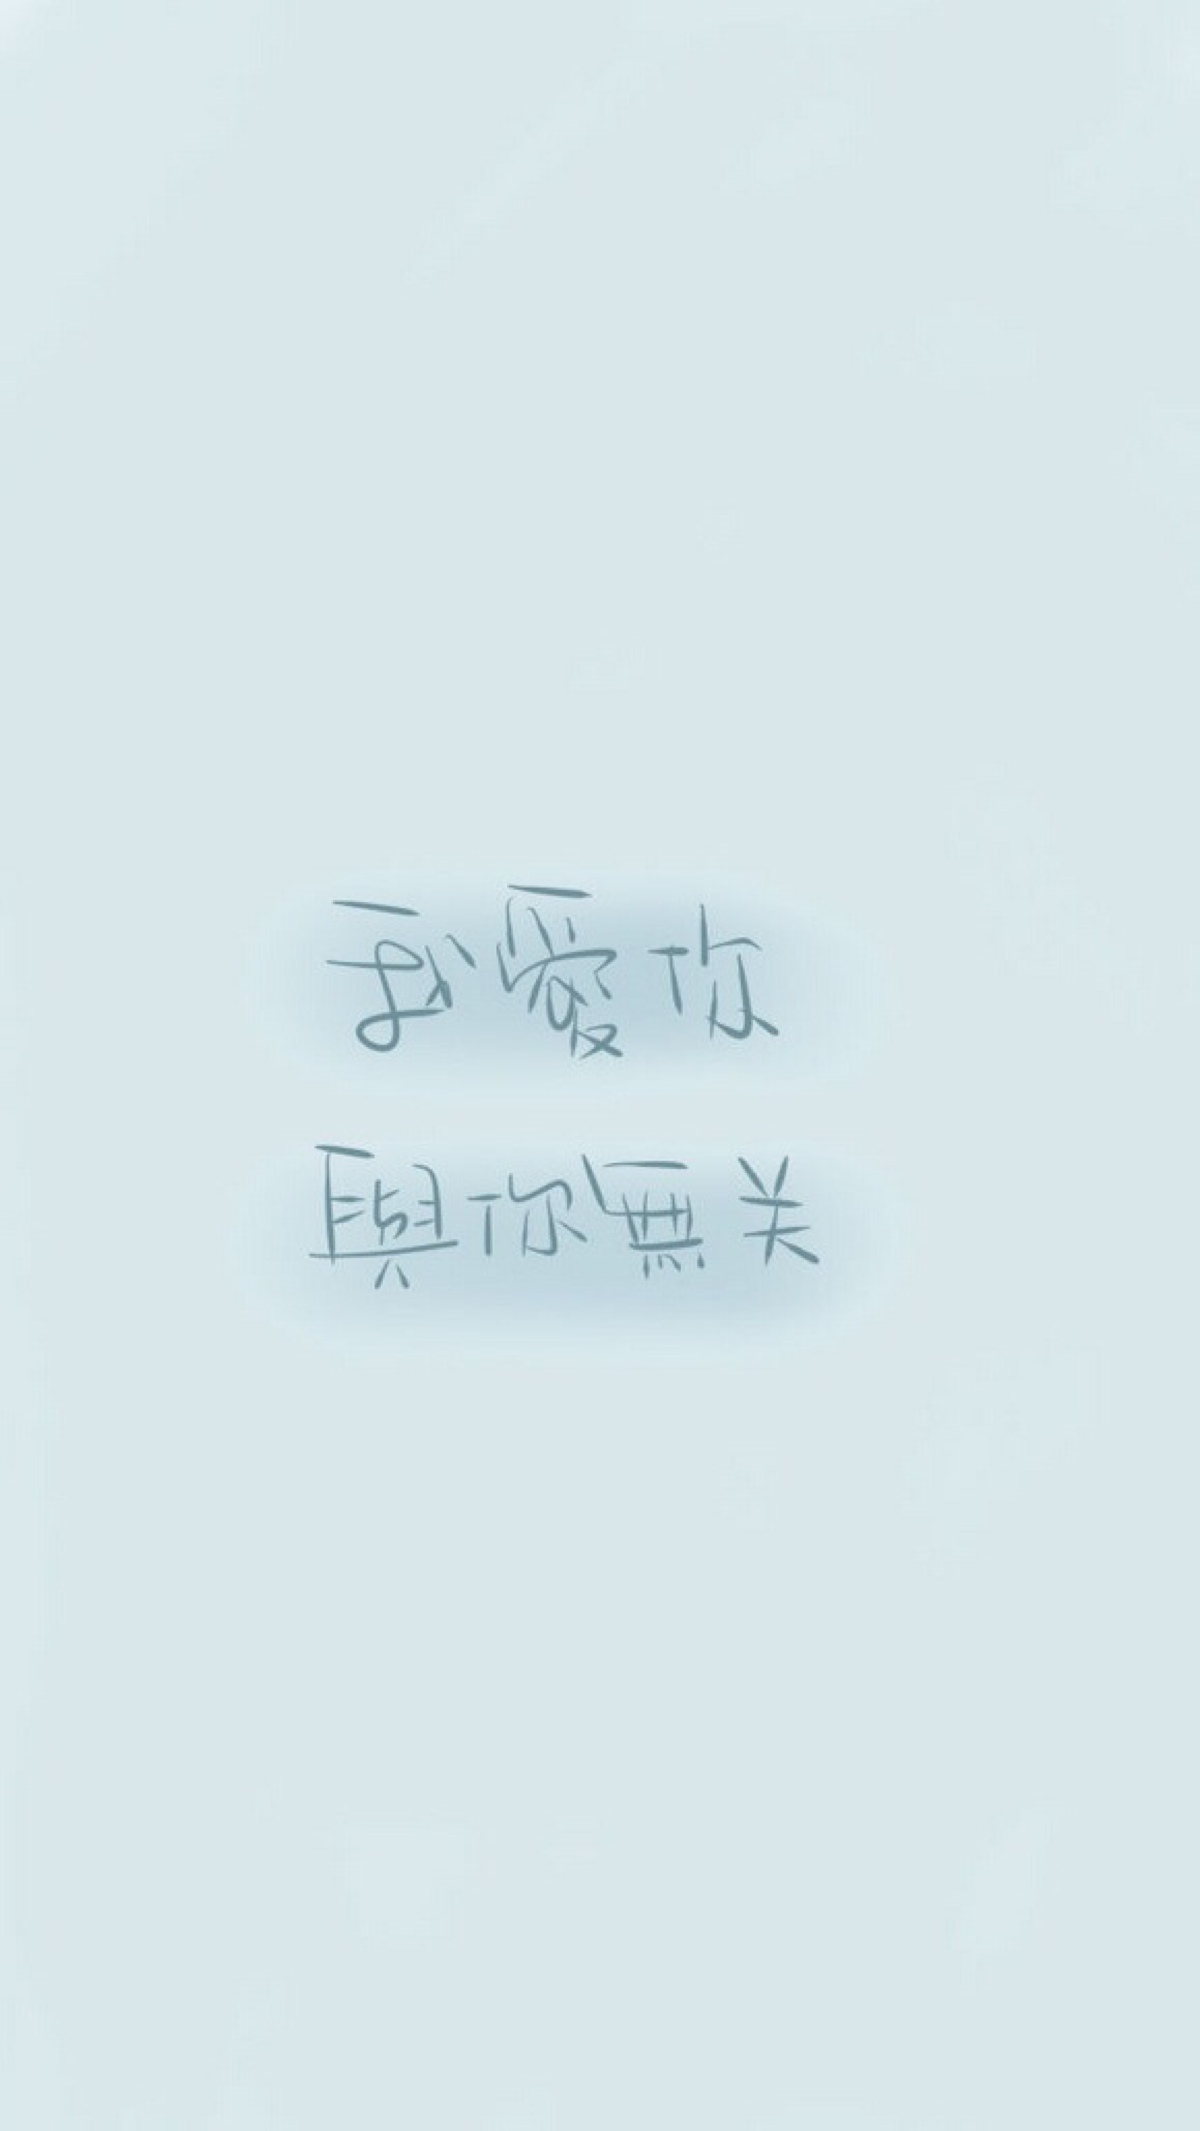 我愛你
與你無关